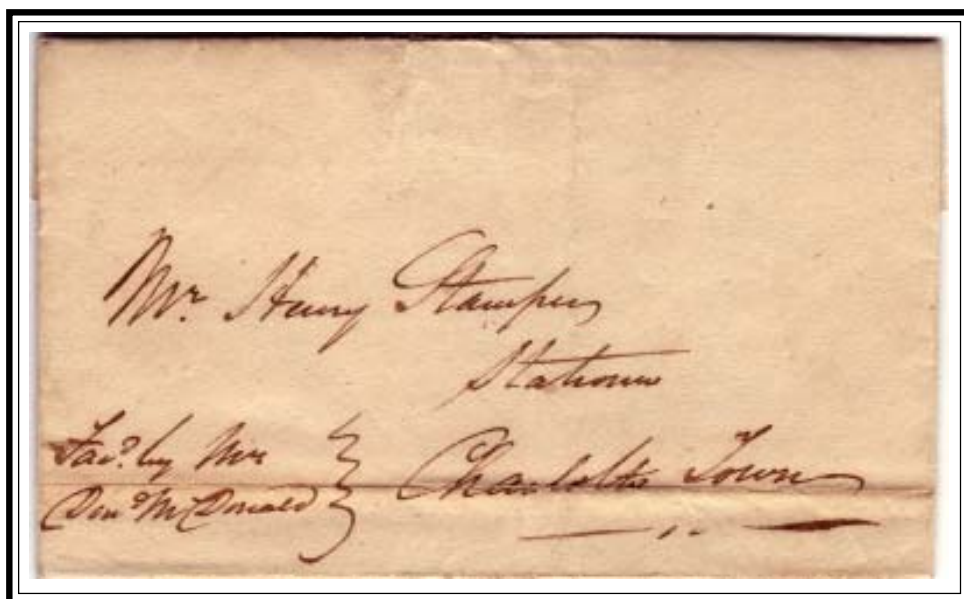 Mr. Henry Stamper
Stationer
Favd. by Mr
McDonald
Charlotte Town